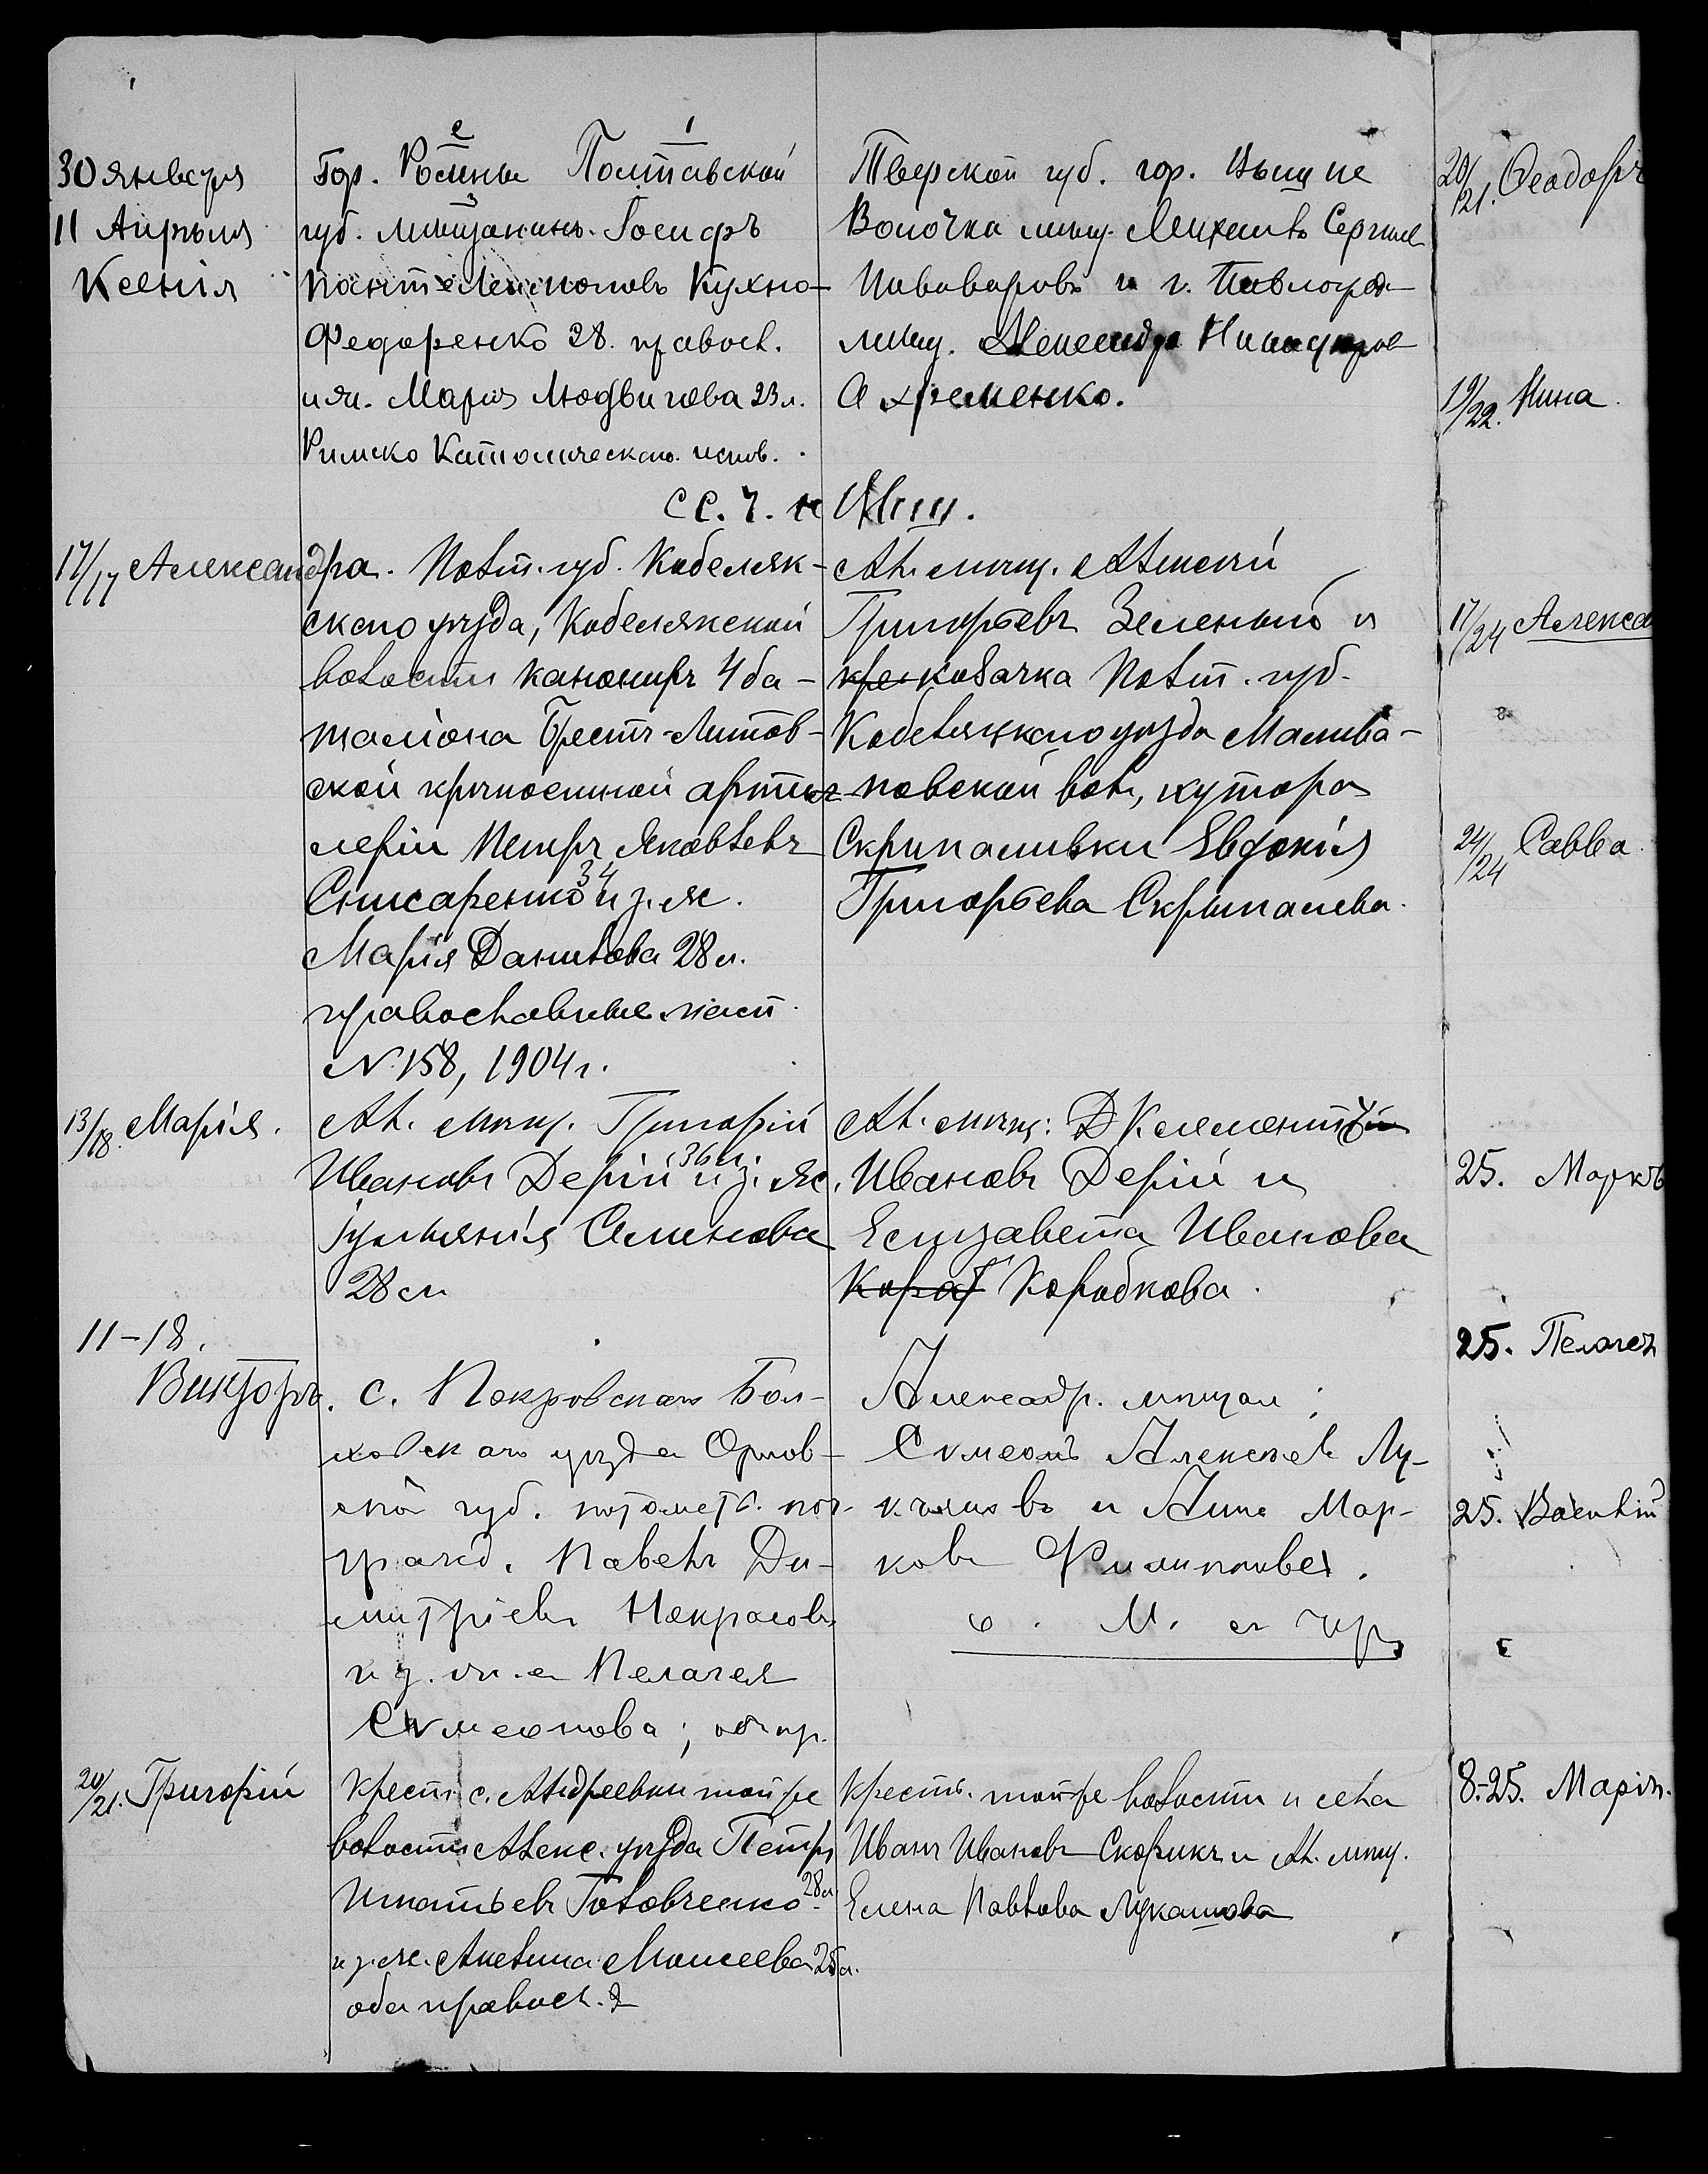 30 января
11 Апрѣля
Ксенія
Гор. Ромны Полтавской
губ. мѣщанинъ Іосифъ
Пантелеимоновъ Кухно-
Федоренко 28. правосл.
и як. Марія Людвигова 23 л.
Римско Католическаго испов.
Тверской губ. гор. Вышне
Волочка мѣщ. Михаилъ Сергѣев
Пивоваровъ и г. Павлоград
мѣщ. Александра Никифоров
Ахременко.
СС. Ч. и
17/17 Александра. Полт. губ. Кобеляк-
скаго уѣзда, Кобелякской
волости канониръ 4 ба-
таліона Брестъ-Литов-
ской крѣпостной артил-
леріи Петръ Яковлевъ
Снисаренко 34 и з. ж.
Марія Данилова 28 л.
православные
№ 158, 1904 г.
Ал. мѣщ. Алексѣй
Григорьевъ Зеленый и
кре козачка Полт. губ.
Кобелякскаго уѣзда Маливa-
новской вол., хутора
Скрипаливки Евдокія
Григорьева Скрыпалева.
13/18. Марія.
Ал. мѣщ. Григорій
Ивановъ Дерій 36 л. и з. ж.
Іуліанія Семенова
28 л
Ал. мѣщ. Климентій
Ивановъ Дерій и
Елизавета Иванова
Кораб Коробкова.
11-18.
Викторъ.
с. Покровскаго Бол-
ховскаго уѣзда Орлов-
ской губ. потомств. поч.
гражд. Павелъ Ди-
митріевъ Некрасовъ
и з. ж. е. Пелагея
Симеонова; оба пр.
Александр. мѣщан;
Симеонъ Алексѣев Лу-
кьяновъ и Анна Мар-
кова Филиппова.
20/21. Григорій
Крест. с. Андреевки той же
волости Алекс. уѣзда Петръ
Игнатьевъ Головченко 28 л
и з. ж. Акелина Моисеева 25 л.
оба правосл.
Крест. той же волости и села
Иванъ Ивановъ Скорикъ и Ал. мѣщ.
Елена Павлова Лукашова
20/21. Ѳеодоръ
19/22. Нина.
17/24 Алекса
24/24 Савва.
25. Маркъ
25. Пелагея
25. Василій
8-25. Марія.